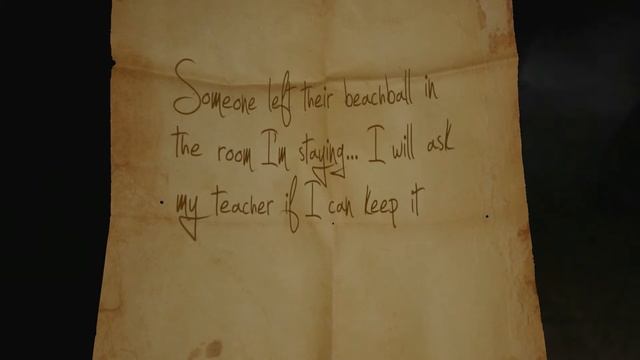 Someone left their beachball in
the room I'm staying... I will ask
my teacher if I can keep it